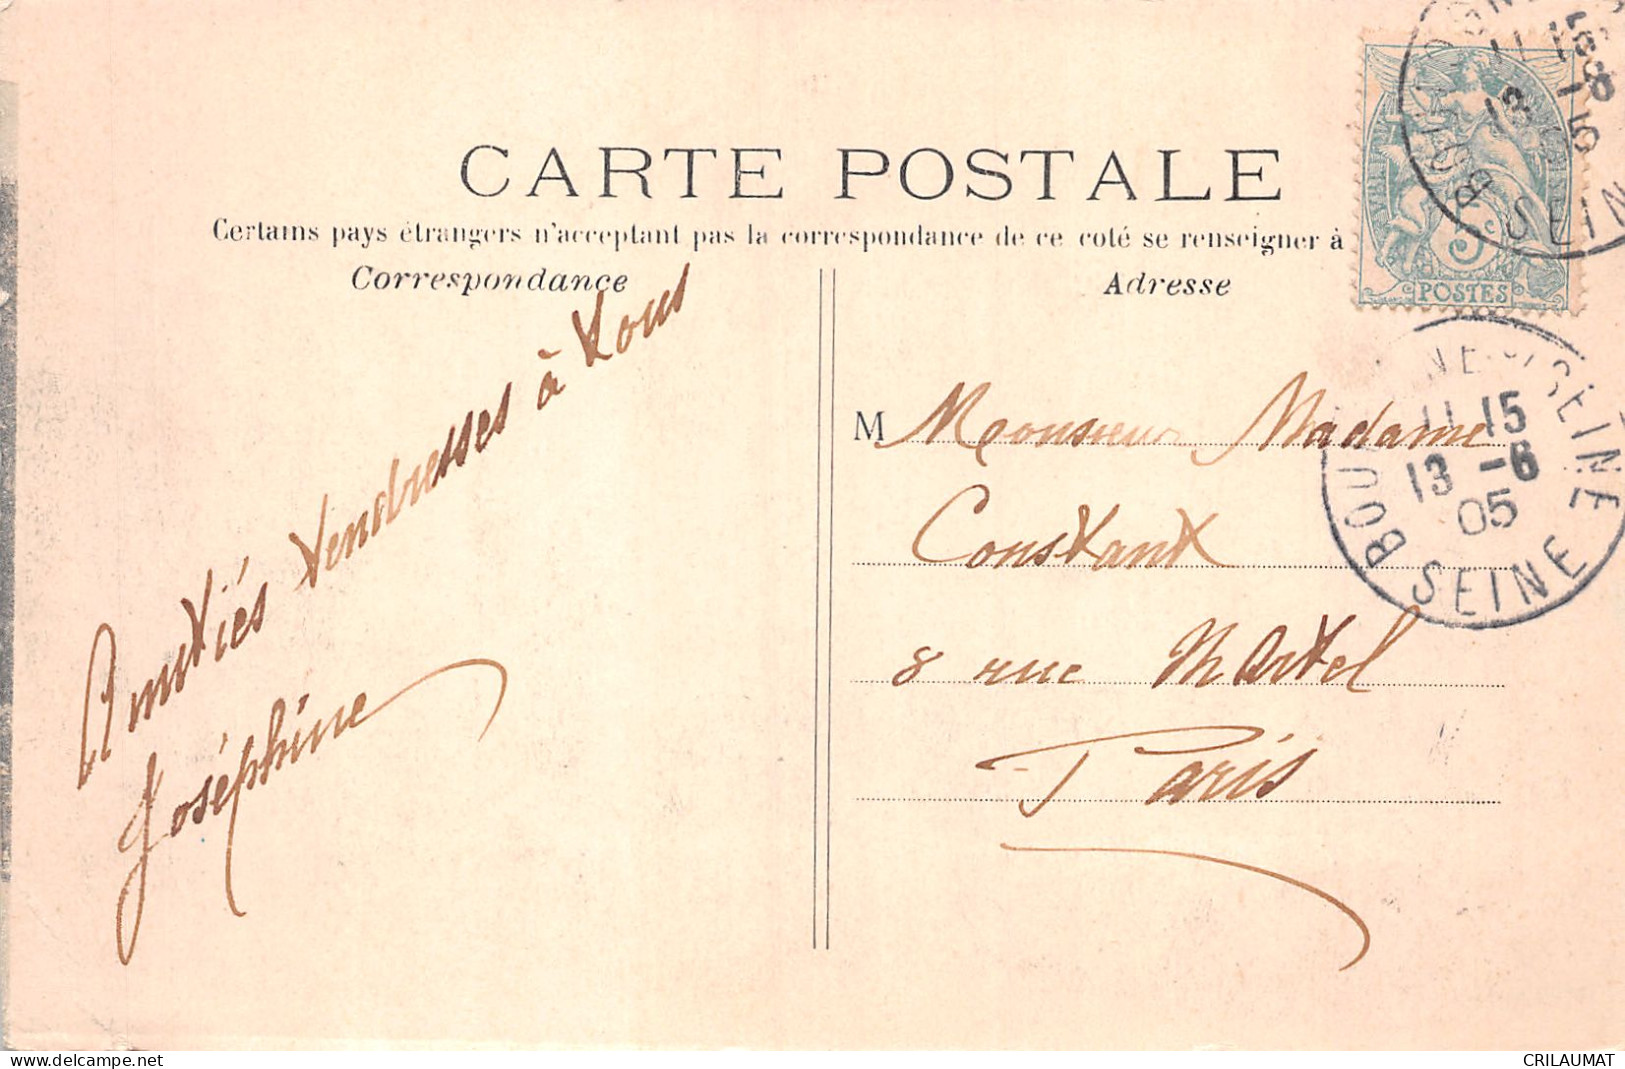 CARTE POSTALE
Certains pays étrangers n'acceptant pas la correspondance de ce coté se renseigner à
Correspondance
Adresse
Amitiés tendresses à tous
Joséphine
M Monsieur Madame
Constant
8 rue Martel
Paris
5c
POSTES
11 15
13 -6
05
SEINE
BOU NE S/SEINE
11 15
13 -6
05
SEINE
delcampe.net
CRILAUMAT